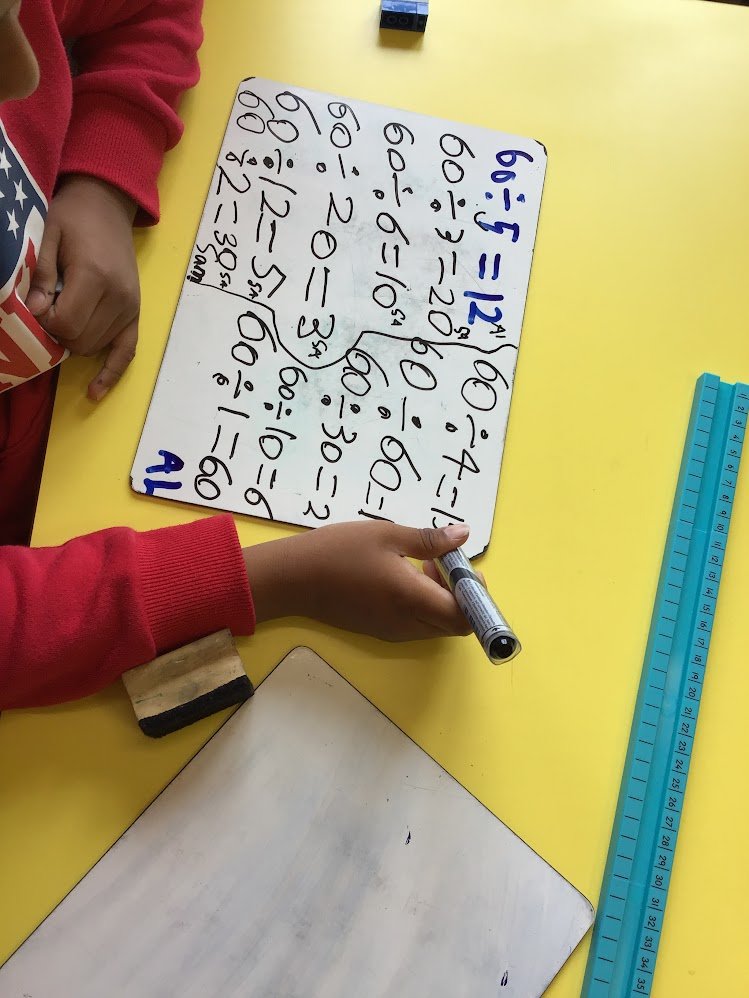 60÷5=12 Al
60÷3=20 SA
60÷6=10 SA
60÷20=3 SA
60÷12=5 SA
60÷2=30 SA
Sam
60÷4=1
60÷60=1
60÷30=2
60÷10=6
60÷1=60
AL
1 2 3 4 5 6 7 8 9 10 11 12 13 14 15 16 17 18 19 20 21 22 23 24 25 26 27 28 29 30 31 32 33 34 35